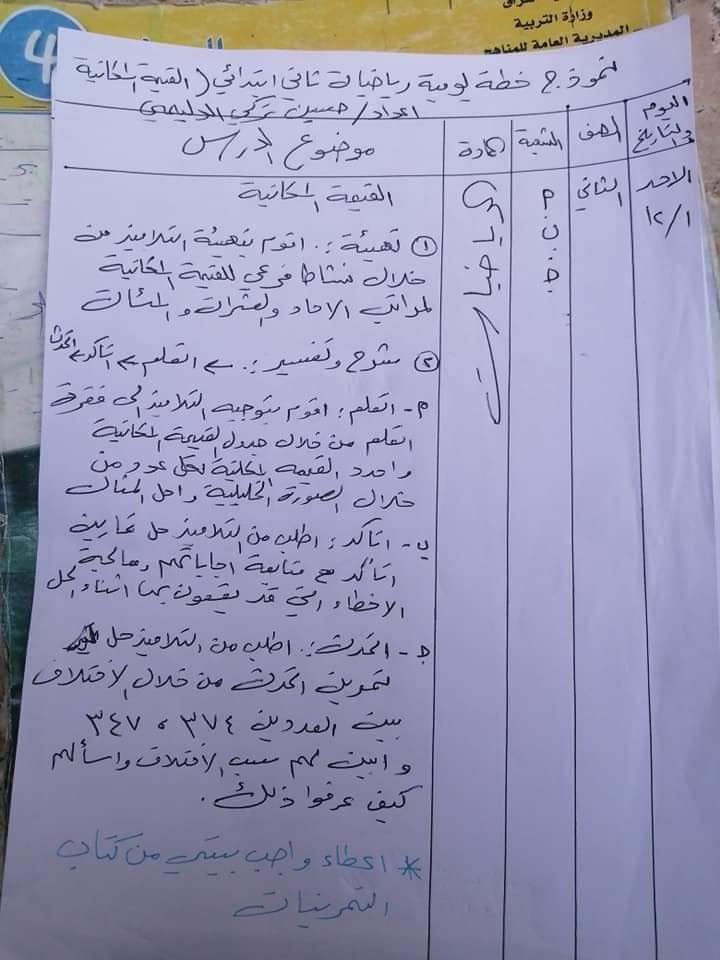 وزارة التربية
المديرية العامة للمناهج
4
نموذج خطة يومية رياضيات ثاني ابتدائي (القيمة المكانية
اعداد/حسين تركي الدليمي
اليوم والتاريخ
الصف
الشعبة
المادة
موضوع الدرس
الاحد
١٢/١
الثاني
م
ب
ج
الرياضيات
القيمة المكانية
① تهيئة :. اقوم بتهيئة التلاميذ من
خلال نشاط فرعي للقيمة المكانية
لمراتب الاحاد والعشرات والمئات
② شرح وتفسير :. ← اتعلم ← اتاكد ← اتحدث
م- اتعلم : اقوم بتوجيه التلاميذ الى فقرة
اتعلم من خلال جدول القيمة المكانية
واحدد القيمه المكانية لكل عدد من
خلال الصورة التحليلية واحل المثال
ب- اتاكد : اطلب من التلاميذ حل تمارين
اتأكد مع متابعة اجاباتهم ومعالجة
الاخطاء التي قد يقعون بها اثناء الحل
ج- اتحدث :. اطلب من التلاميذ حل
تمرين اتحدث من خلال الاختلاف
بين العددين ٣٧٤ ، ٣٤٧
وابين لهم سبب الاختلاف واسألهم
كيف عرفوا ذلك .
* اعطاء واجب بيتي من كتاب
التمرينات